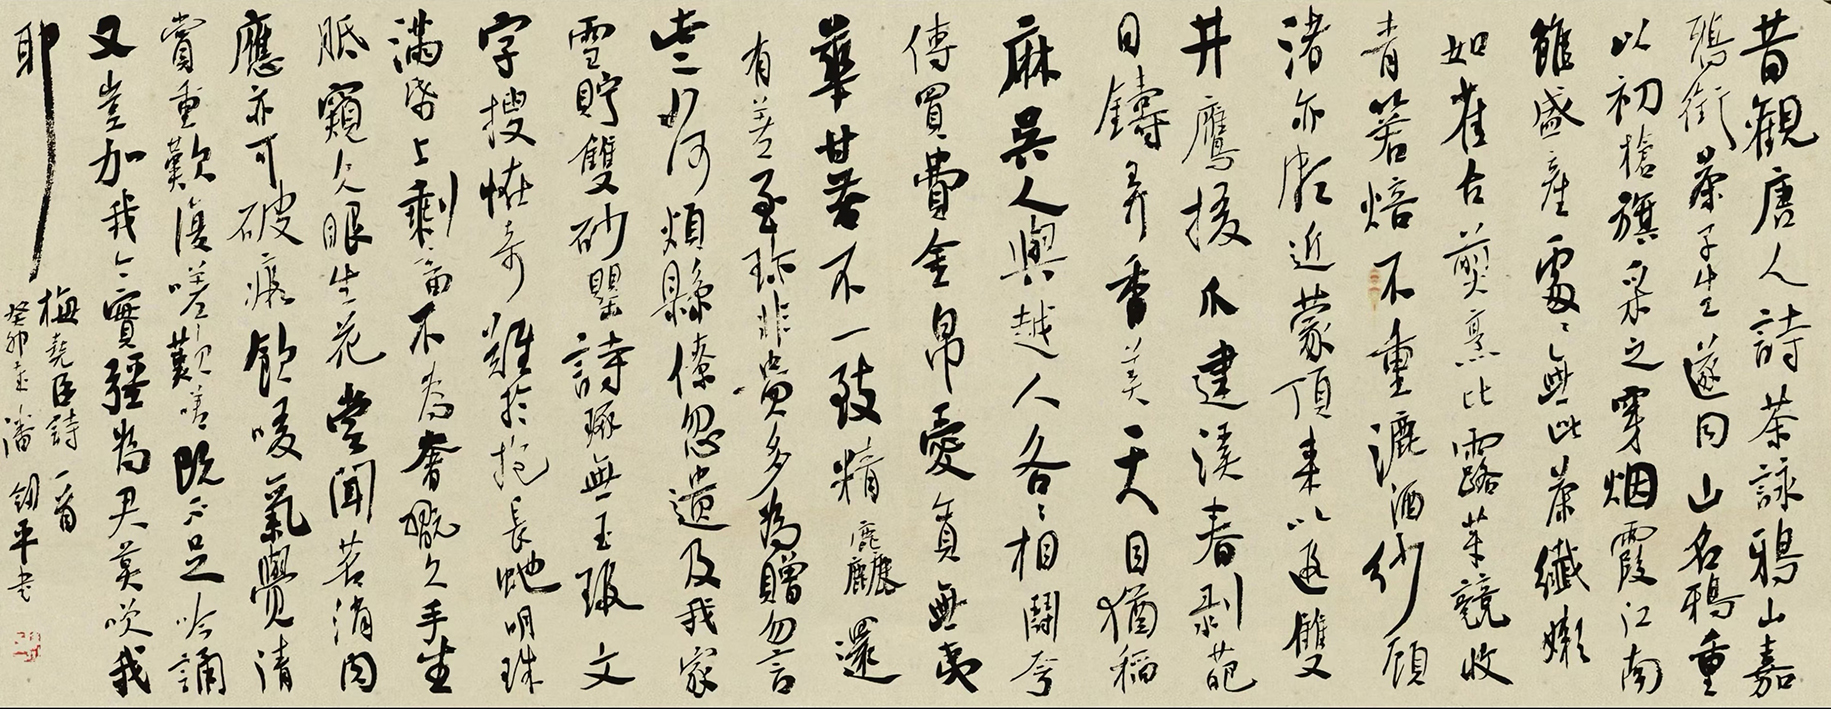 昔觀唐人詩茶詠鴉山嘉
鴉銜茶子生遂同山名鴉重
以初槍旗采之穿烟霞江南
雖盛產處〻無此茶纖嫩
如雀舌煎烹比露芽競收
青箬焙不重漉酒紗顧
渚亦頗近蒙頂來以遐雙
井鷹掇爪建溪春剥葩
日鑄弄香美天目猶稻
麻吳人與越人各〻相鬪夸
傳買費金帛愛貪無夷
華甘苦不一致精麤還
有差至珍非貴多為贈勿言
些如何煩縣僚忽遺及我家
雪貯雙砂罌詩琢無玉瑕文
字搜怪奇難於抱長蛇明珠
滿帋上剩畜不為奢翫久手生
胝窺久眼生花嘗聞茗消肉
應亦可破瘕飲啜氣覺清
賞重歎復嗟歎嗟既不足吟誦
又豈加我今實彊為君莫笑我
耶
梅堯臣詩一首
癸卯 潘 平書